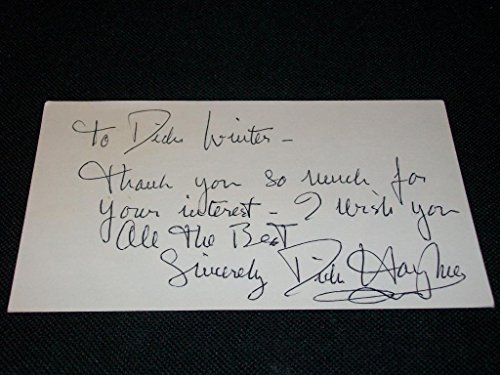 To Dick Winter -
Thank you so much for
your interest - I wish you
All the Best
Sincerely Dick Haymes